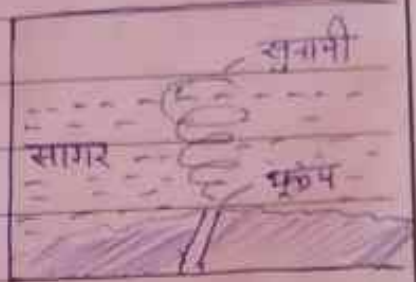 सुनामी
सागर
भूकंप